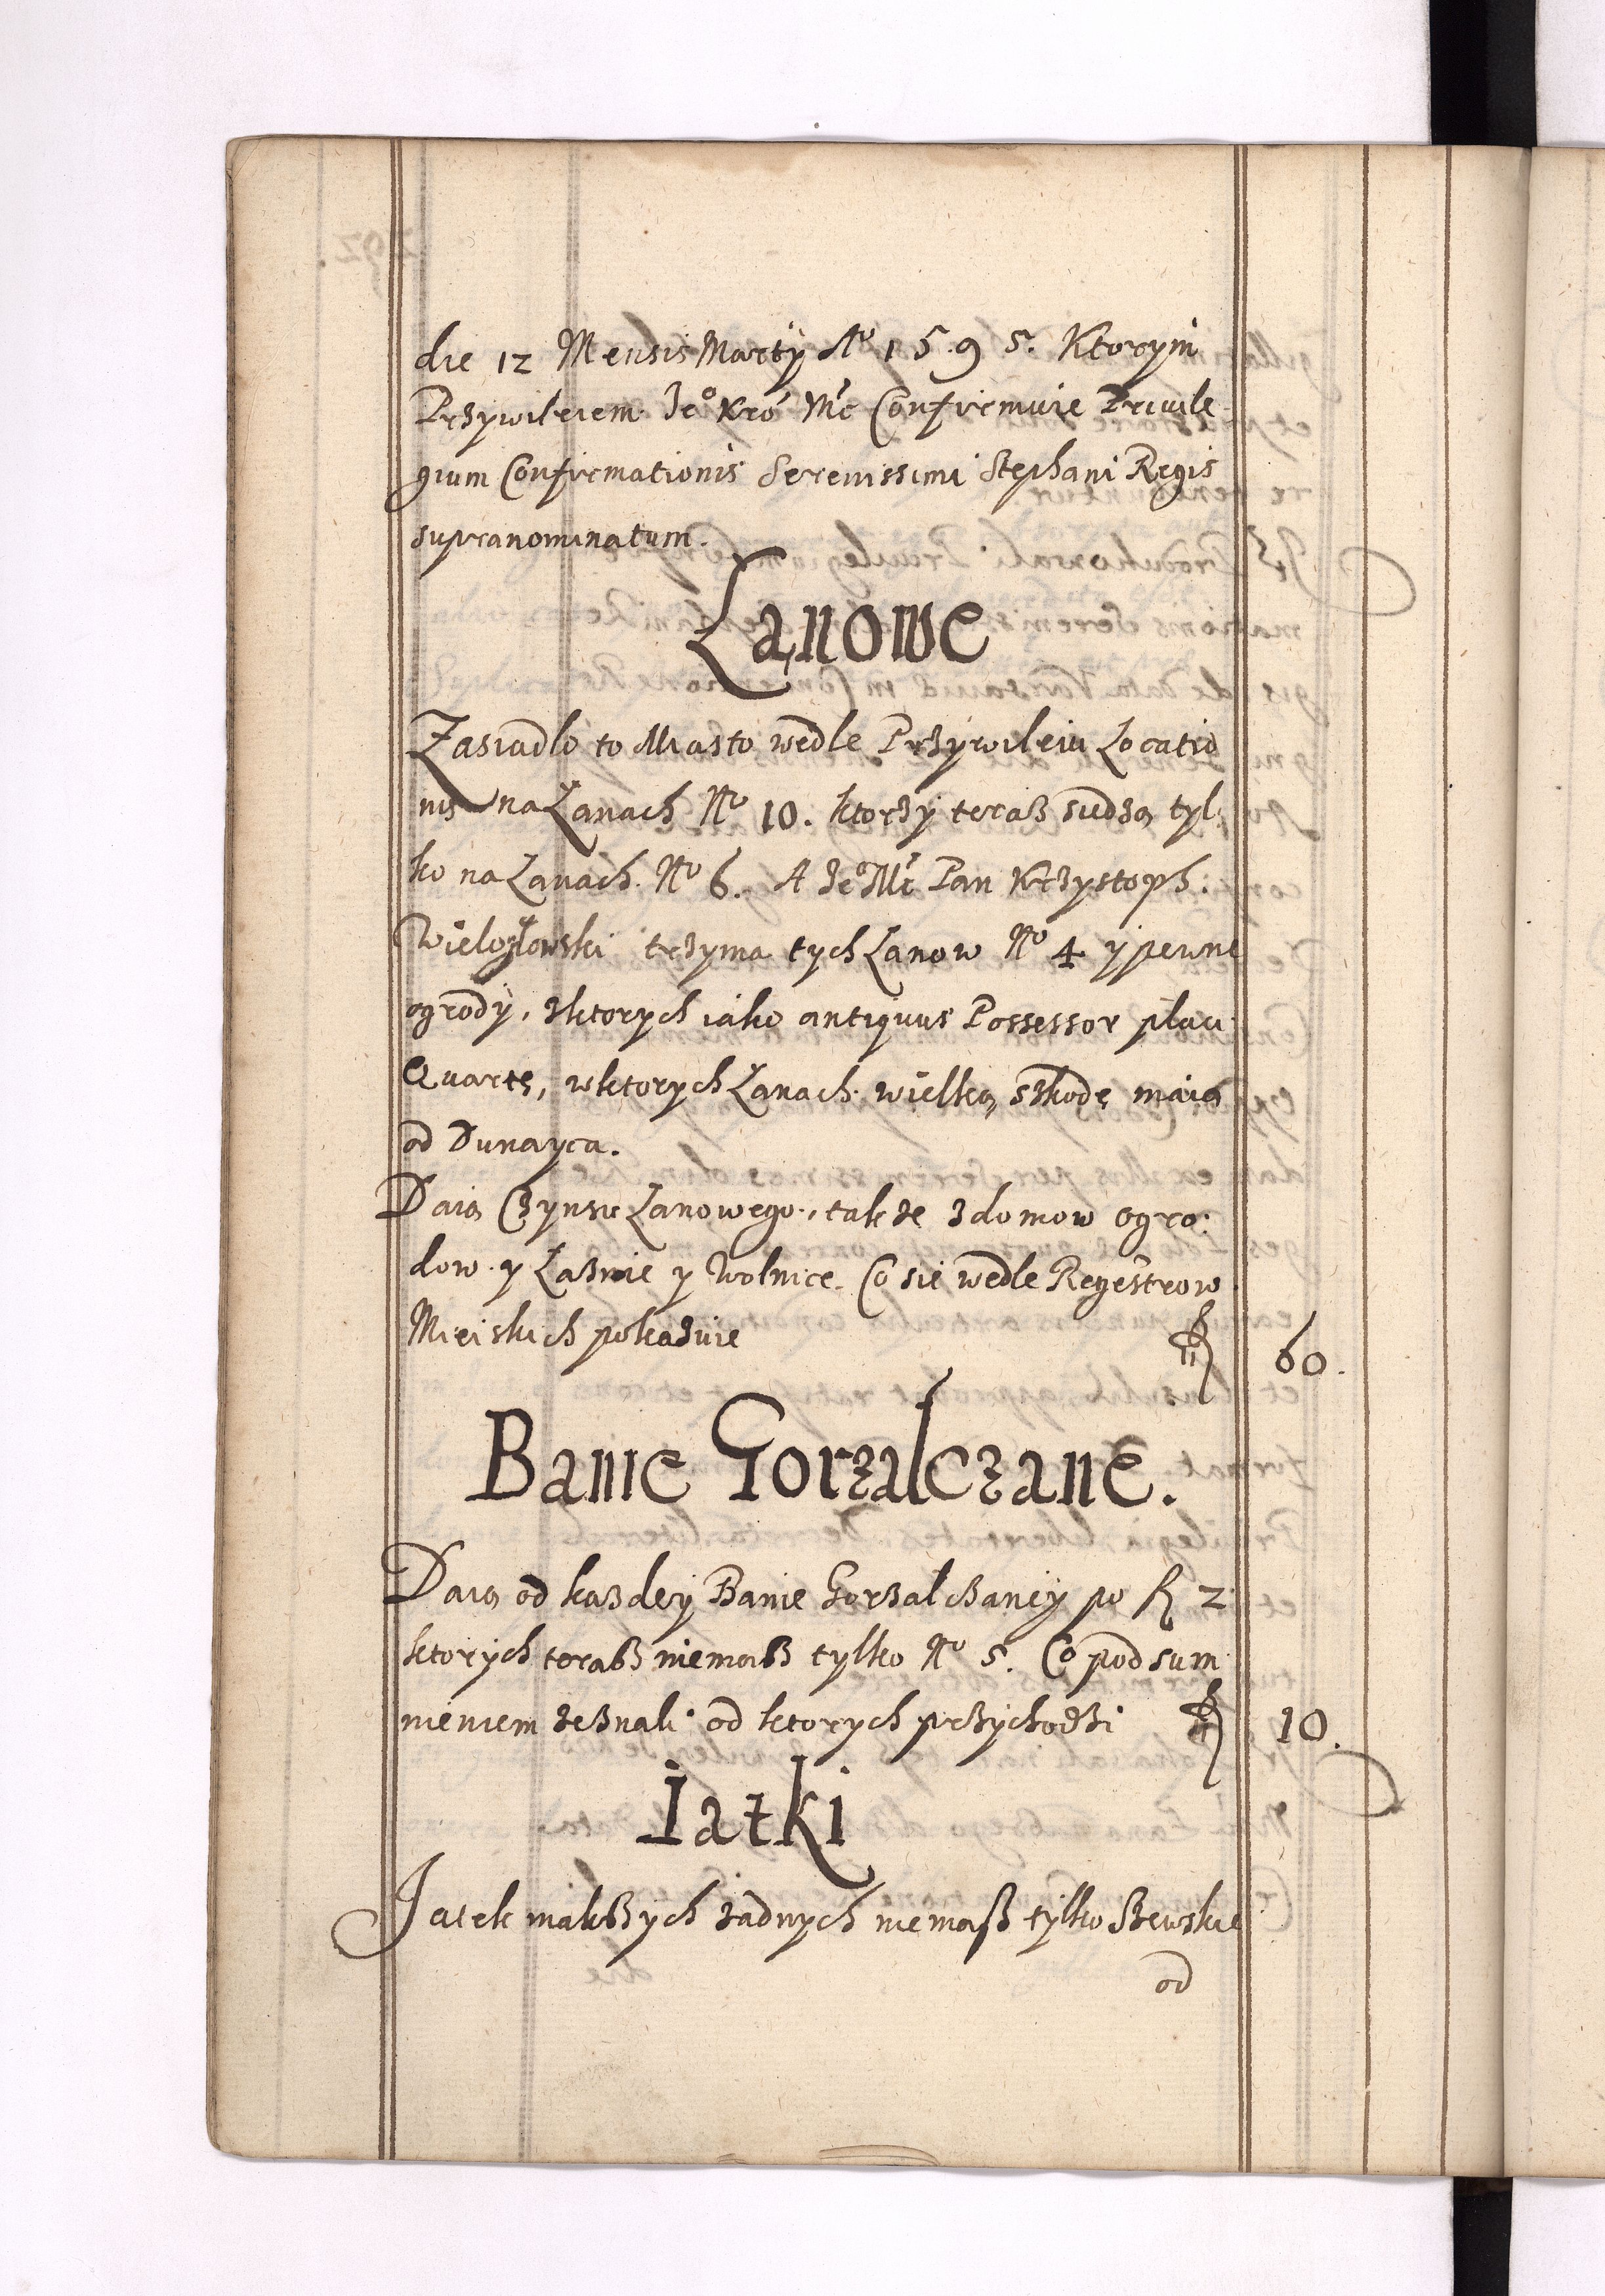 die 12 Mensis Martÿ Aº 1595. Ktorym
Przywileiem Jeº Kró Mć Confirmuie Priuile
gium Confirmationis Serenissimi Stephani Regis
supranominatum.
Łanowe
Zasiadło to Miasto wedle Przywileiu Locatio
nis na Łanach Nº 10. ktorzy teraz siedzą tyl
ko na Łanach. Nº 6. A Jeº Mć Pan Krzystoph.
Wielogłowski trzyma tych Łanow Nº 4 y pewne
ogrody, z ktorych iako antiquus Possessor płaci
Quartę, w ktorych Łanach wielką szkodę maią
od Dunayca.
Daią Czynsu Łanowego, takze z domow ogro
dow y Łaznie y Wolnice. Co sie wedle Regestrow
Mieiskich pokazuie 60.
Banie Gorzalczane.
Daią od kazdey Banie Gorzalczaney po fl 2
ktorych terasz niemasz tylko Nº 5. Co pod sum
nieniem zeznali od ktorych przychodzi 10.
Iatki
Jatek inakszych zadnych niemasz tylko Szewskie
od